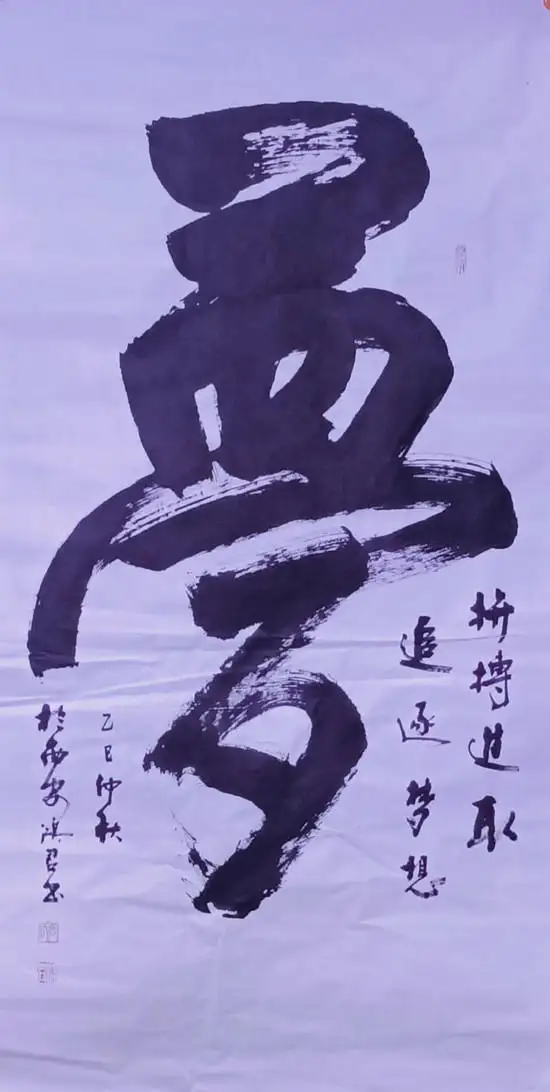 夢
拼搏進取
追逐梦想
乙巳仲秋
於西安 书